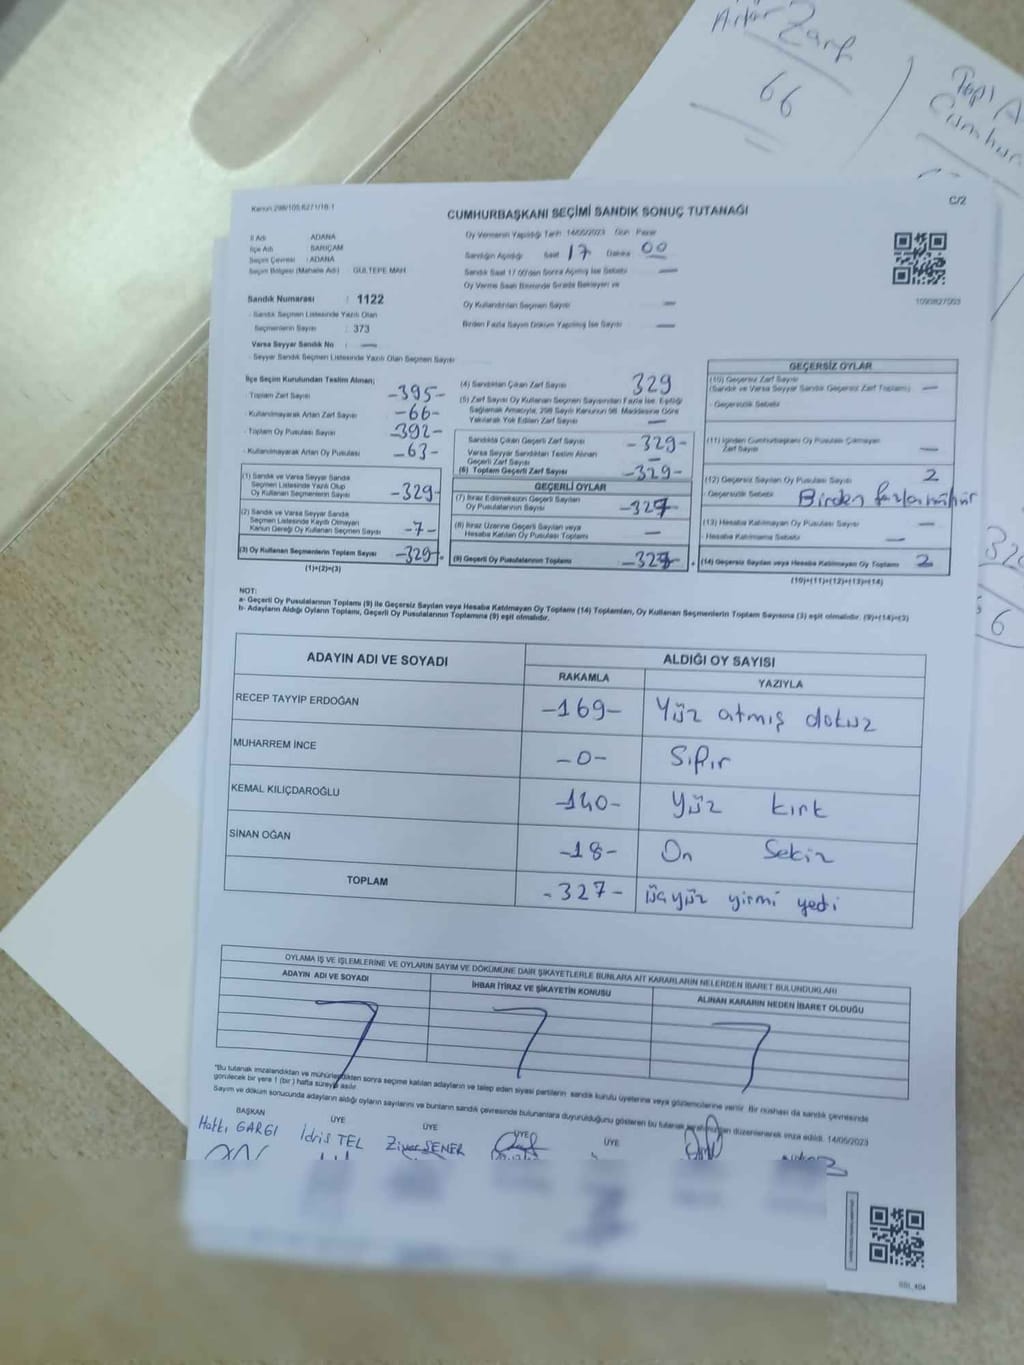 Artan Zarf
66
Kanun 298/105,6271/18-1
C/2
CUMHURBAŞKANI SEÇİMİ SANDIK SONUÇ TUTANAĞI
İl Adı ADANA
İlçe Adı SARIÇAM
Seçim Çevresi : ADANA
Seçim Bölgesi (Mahalle Adı) GÜLTEPE MAH
Sandık Numarası : 1122
Sandık Seçmen Listesinde Yazılı Olan
Seçmenlerin Sayısı : 373
Varsa Seyyar Sandık No —
Seyyar Sandık Seçmen Listesinde Yazılı Olan Seçmen Sayısı
Oy Vermenin Yapıldığı Tarih 14/05/2023 Gün Pazar
Sandığın Açıldığı Saat 17 Dakika 00
Sandık Saat 17.00'den Sonra Açılmış İse Sebebi —
Oy Verme Saati Bitiminde Sırada Bekleyen ve
Oy Kullandırılan Seçmen Sayısı —
Birden Fazla Sayım Döküm Yapılmış İse Sayısı —
1090827003
İlçe Seçim Kurulundan Teslim Alınan;
- Toplam Zarf Sayısı -395-
- Kullanılmayarak Artan Zarf Sayısı -66-
- Toplam Oy Pusulası Sayısı -392-
- Kullanılmayarak Artan Oy Pusulası -63-
(1) Sandık ve Varsa Seyyar Sandık
Seçmen Listesinde Yazılı Olup
Oy Kullanan Seçmenlerin Sayısı -329-
(2) Sandık ve Varsa Seyyar Sandık
Seçmen Listesinde Kaydı Olmayan
Kanun Gereği Oy Kullanan Seçmen Sayısı -7-
(3) Oy Kullanan Seçmenlerin Toplam Sayısı -329-
(1)+(2)=(3)
(4) Sandıktan Çıkan Zarf Sayısı 329
(5) Zarf Sayısı Oy Kullanan Seçmen Sayısından Fazla İse, Eşitliği
Sağlamak Amacıyla, 298 Sayılı Kanunun 98. Maddesine Göre
Yakılarak Yok Edilen Zarf Sayısı —
Sandıkta Çıkan Geçerli Zarf Sayısı -329-
Varsa Seyyar Sandıktan Teslim Alınan
Geçerli Zarf Sayısı —
(6) Toplam Geçerli Zarf Sayısı -329-
GEÇERLİ OYLAR
(7) İtiraz Edilmeksizin Geçerli Sayılan
Oy Pusulalarının Sayısı -327
(8) İtiraz Üzerine Geçerli Sayılan veya
Hesaba Katılan Oy Pusulası Toplamı —
(9) Geçerli Oy Pusulalarının Toplamı -327-
GEÇERSİZ OYLAR
(10) Geçersiz Zarf Sayısı
(Sandık ve Varsa Seyyar Sandık Geçersiz Zarf Toplamı) —
- Geçersizlik Sebebi
(11) İçinden Cumhurbaşkanı Oy Pusulası Çıkmayan
Zarf Sayısı —
(12) Geçersiz Sayılan Oy Pusulası Sayısı 2
- Geçersizlik Sebebi Birden fazla mühür
(13) Hesaba Katılmayan Oy Pusulası Sayısı —
Hesaba Katılmama Sebebi —
(14) Geçersiz Sayılan veya Hesaba Katılmayan Oy Toplamı 2
(10)+(11)+(12)+(13)=(14)
NOT:
a- Geçerli Oy Pusulalarının Toplamı (9) ile Geçersiz Sayılan veya Hesaba Katılmayan Oy Toplamı (14) Toplamları, Oy Kullanan Seçmenlerin Toplam Sayısına (3) eşit olmalıdır. (9)+(14)=(3)
b- Adayların Aldığı Oyların Toplamı, Geçerli Oy Pusulalarının Toplamına (9) eşit olmalıdır.
ADAYIN ADI VE SOYADI ALDIĞI OY SAYISI
RAKAMLA YAZIYLA
RECEP TAYYİP ERDOĞAN -169- Yüz atmış dokuz
MUHARREM İNCE -0- Sıfır
KEMAL KILIÇDAROĞLU -140- Yüz kırk
SİNAN OĞAN -18- On Sekiz
TOPLAM -327- üçyüz yirmi yedi
OYLAMA İŞ VE İŞLEMLERİNE VE OYLARIN SAYIM VE DÖKÜMÜNE DAİR ŞİKAYETLERLE BUNLARA AİT KARARLARIN NELERDEN İBARET BULUNDUKLARI
ADAYIN ADI VE SOYADI İHBAR İTİRAZ VE ŞİKAYETİN KONUSU ALINAN KARARIN NEDEN İBARET OLDUĞU
"Bu tutanak imzalandıktan ve mühürlendikten sonra seçime katılan adayların ve talep eden siyasi partilerin sandık kurulu üyelerine veya gözlemcilerine verilir. Bir nüshası da sandık çevresinde
görülecek bir yere 1 (bir) hafta süreyle asılır.
Sayım ve döküm sonucunda adayların aldığı oyların sayılarını ve bunların sandık çevresinde bulunanlara duyurulduğunu gösteren bu tutanak tarafımızdan düzenlenerek imza edildi. 14/05/2023
BAŞKAN ÜYE ÜYE ÜYE ÜYE
Hakkı GARGI İdris TEL Ziya ŞENER